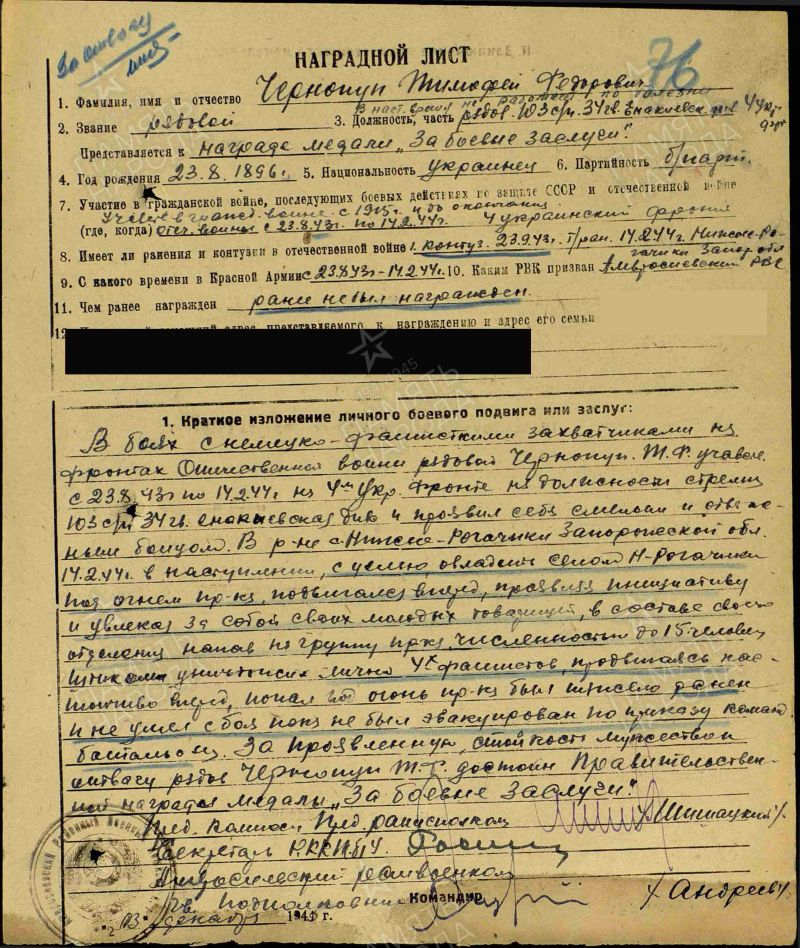 За отвагу
76
НАГРАДНОЙ ЛИСТ
1. Фамилия, имя и отчество Чернопуп Тимофей Федорович
В наст. время не работает по болезни
2. Звание рядовой 3. Должность, часть рядов. 103 с/п. 34 гв. Енакиевск. див 4 Укр. фрт
Представляется к награде медали „За боевые заслуги".
4. Год рождения 23.8.1896 г. 5. Национальность украинец 6. Партийность б/парт.
7. Участие в гражданской войне, последующих боевых действиях по защите СССР и отечественной войне
Участв. в гражд. войне с 1915 г. и до окончания.
(где, когда) отеч. войны с 23.8.43 г. по 14.2.44 г. 4 украинский фронт
8. Имеет ли ранения и контузии в отечественной войне 1. контуз. 23.9.43 г. т/ран. 14.2.44 г. Нижне-Ро-
гачики Запор. обл
9. С какого времени в Красной Армии с 23.8.43 г. - 14.2.44 г. 10. Каким РВК призван Амвросиевский РВК
11. Чем ранее награжден ранее не был награжден.
12. адрес представляемого к награждению и адрес его семьи
1. Краткое изложение личного боевого подвига или заслуг:
В боях с немецко-фашисткими захватчиками на
фронтах Отечественной войны рядовой Чернопуп. Т.Ф. участв.
с 23.8.43 г по 14.2.44 г. на 4ом Укр. Фронте на должности стрелка
103 с/п 34 гв. енакиевская див и проявил себя смелым и отважным
бойцом. В р-не с. Нижне-Рогачики Запорожской обл.
14.2.44 г. в наступлении, с целью овладеть селом Н-Рогачики
под огнем пр-ка, подвигался вперед, проявляя инициативу
и увлекая за собой своих молодых товарищей, в составе своего
отделения напав на группу пр-ка, численностью до 15 человек
штыками уничтожил лично 4х фашистов, продвигаясь нас-
тойчиво вперед, попал под огонь пр-ка был тяжело ранен
и не ушел с боя пока не был эвакуирован по приказу команд
батальона. За проявленную, стойкость мужество и
отвагу рядов Чернопуп Т.Ф. достоин Правительствен-
ной награды медалы „За боевые заслуги".
Пред. комис. Пред. райисполком /Шишацкий/.
Секретарь РККП/б/У.
Амвросиевский райвоенком
Гв. подполковник Командир /Андреев/
„03" декабря 194 г.